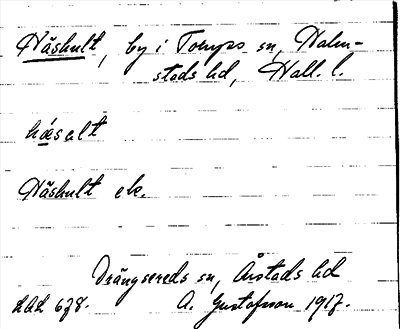 Häshult, by i Torups sn, Halm-
stads hd, Hall. l.
hä́salt
Häshult ek.
Drängsereds sn, Årstads hd
LAL 678. A. Gustafsson 1917.